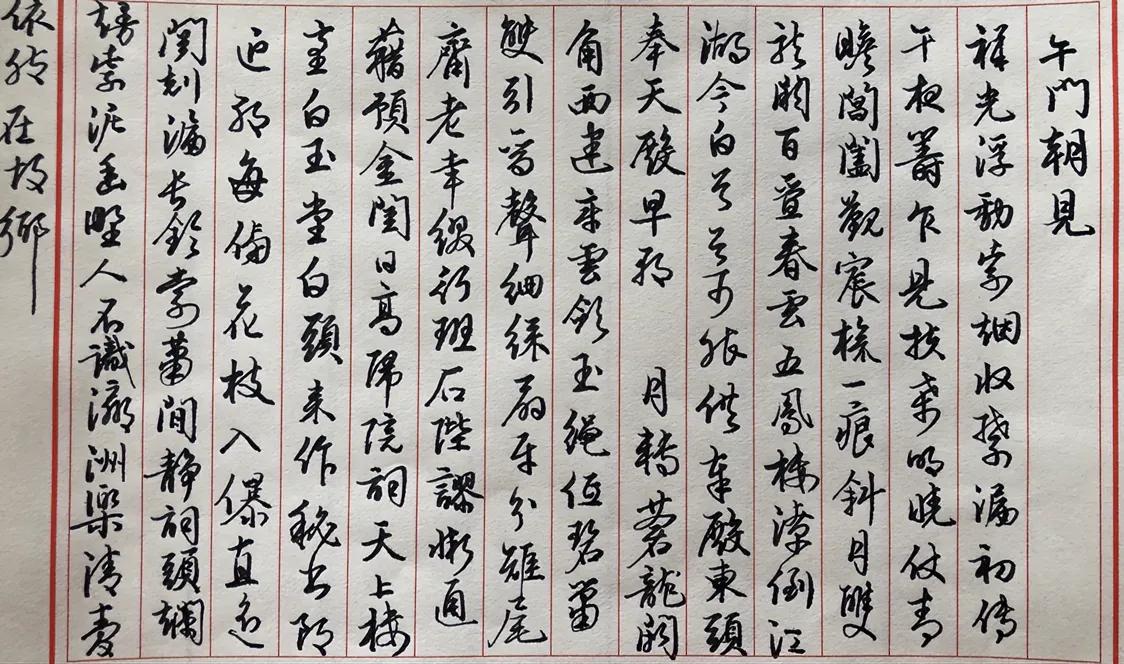 午門朝見
祥光浮動紫烟收禁漏初傳
午夜籌乍見扶桑明曉仗
瞻閶闔觀宸旒一痕斜月雙
龍闕百疊春雲五鳳樓潦倒江
湖今白首首可能供奉殿東頭
奉天殿早朝 月轉蒼龍闕
角西建章雲斂玉繩低碧簫
雙引鸞聲細綵扇平分雉尾
齊老幸綴行班石陛謬慚通
籍預金閨日高歸院詞天上樓
臺白玉堂白頭來作秘書郎
退朝每傍花枝入儤直遙
聞刻漏長鈴索蕭閒靜詞頭爛
熳紫泥香野人不識瀛洲樂清夢
依然在故鄉